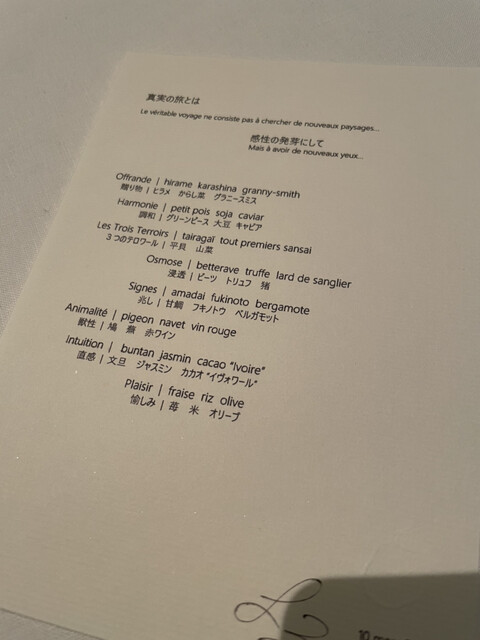 真実の旅とは
Le véritable voyage ne consiste pas à chercher de nouveaux paysages...
感性の発芽にして
Mais à avoir de nouveaux yeux...
Offrande | hirame karashina granny-smith
贈り物 | ヒラメ からし菜 グラニースミス
Harmonie | petit pois soja caviar
調和 | グリーンピース 大豆 キャビア
Les Trois Terroirs | tairagaï tout premiers sansai
3つのテロワール | 平貝 山菜
Osmose | betterave truffe lard de sanglier
浸透 | ビーツ トリュフ 猪
Signes | amadai fukinoto bergamote
兆し | 甘鯛 フキノトウ ベルガモット
Animalité | pigeon navet vin rouge
獣性 | 鳩 蕪 赤ワイン
Intuition | buntan jasmin cacao "Ivoire"
直感 | 文旦 ジャスミン カカオ "イヴォワール"
Plaisir | fraise riz olive
愉しみ | 苺 米 オリーブ